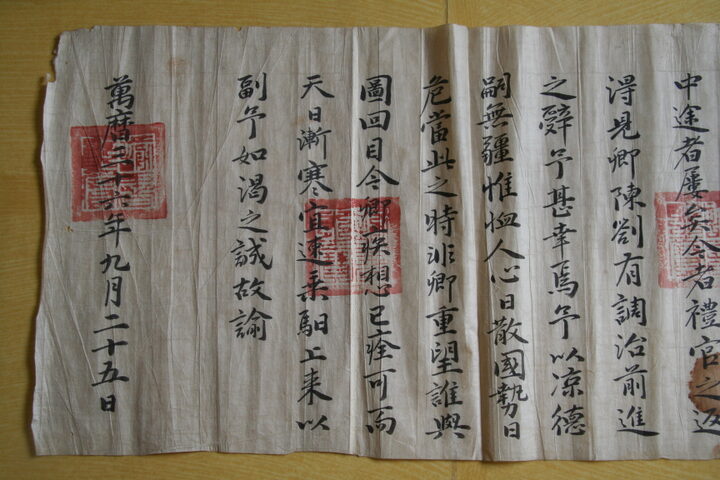 中途者屢矣今者禮官之返
得見卿陳劄有調治前進
之辭予甚幸焉予以凉德
嗣無疆惟恤人心日散國勢日
危當此之時非卿重望誰與
圖回目今卿疾想已痊可而
天日漸寒宜速乘馹上来以
副予如渴之誠故諭
萬曆三十六年九月二十五日